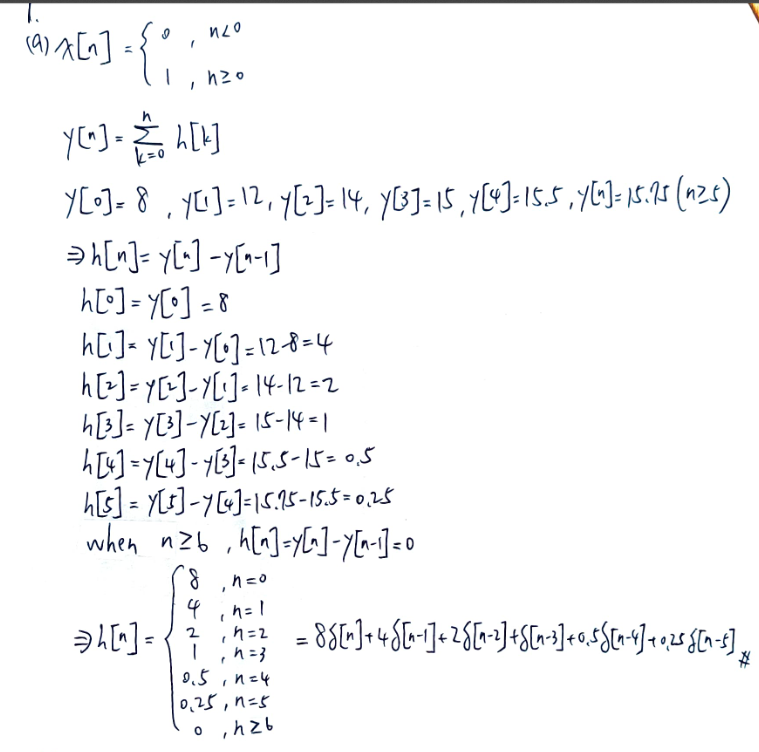 1.
(a) x[n] = { 0 , n<0
1 , n≥0
y[n] = Σ_{k=0}^{n} h[k]
y[0]=8 , y[1]=12, y[2]=14, y[3]=15, y[4]=15.5, y[n]=15.75 (n≥5)
⇒ h[n]= y[n] -y[n-1]
h[0]=y[0] =8
h[1]= y[1]-y[0]=12-8=4
h[2]=y[2]-y[1]=14-12=2
h[3]= y[3]-y[2]= 15-14=1
h[4]=y[4]-y[3]=15.5-15= 0.5
h[5]= y[5]-y[4]=15.75-15.5=0.25
when n≥6 , h[n]=y[n]-y[n-1]=0
⇒ h[n] = { 8 , n=0
4 , n=1
2 , n=2
1 , n=3
0.5 , n=4
0.25 , n=5
0 , n≥6
= 8δ[n]+4δ[n-1]+2δ[n-2]+δ[n-3]+0.5δ[n-4]+0.25δ[n-5] #